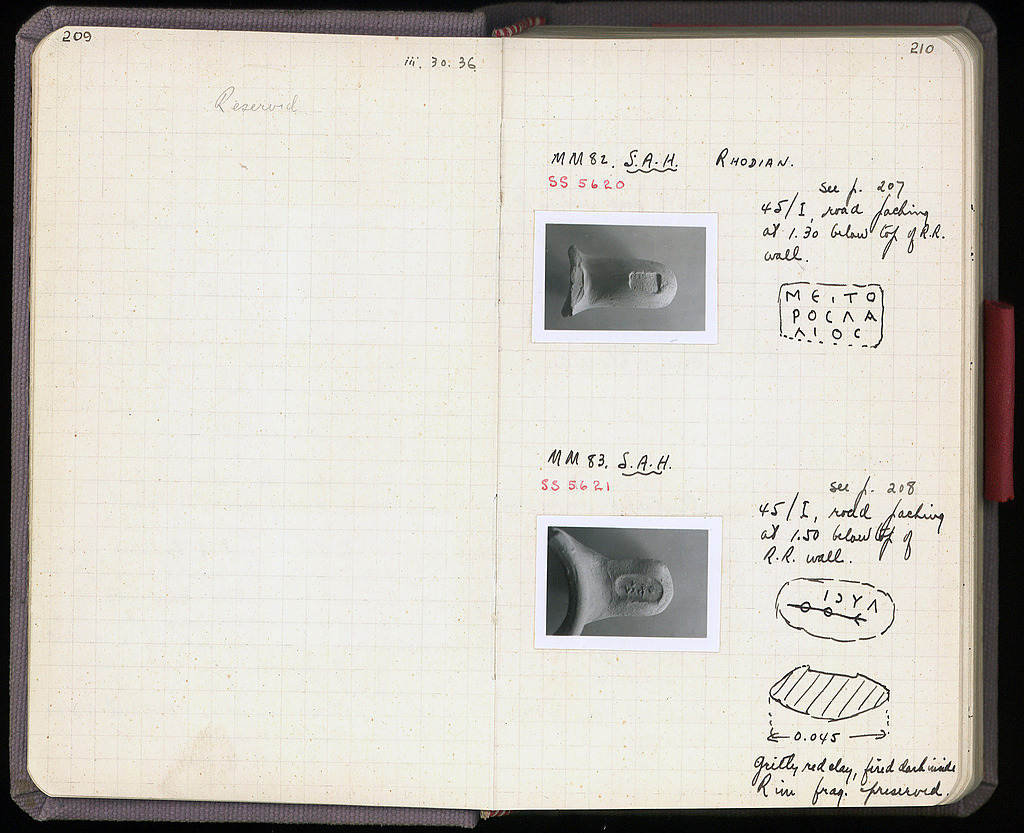 209
iii. 30. 36
Reserved
210
MM 82. S.A.H. RHODIAN.
SS 5620
see p. 207
45/I, road packing
at 1.30 below top of R.R.
wall.
ΜΕΙΤΟ
ΡΟCΛΑ
ΛΙΟC
MM 83. S.A.H.
SS 5621
see p. 208
45/I, road packing
at 1.50 below top of
R.R. wall.
0.045
Gritty red clay, fired dark inside
Rim frag. preserved.